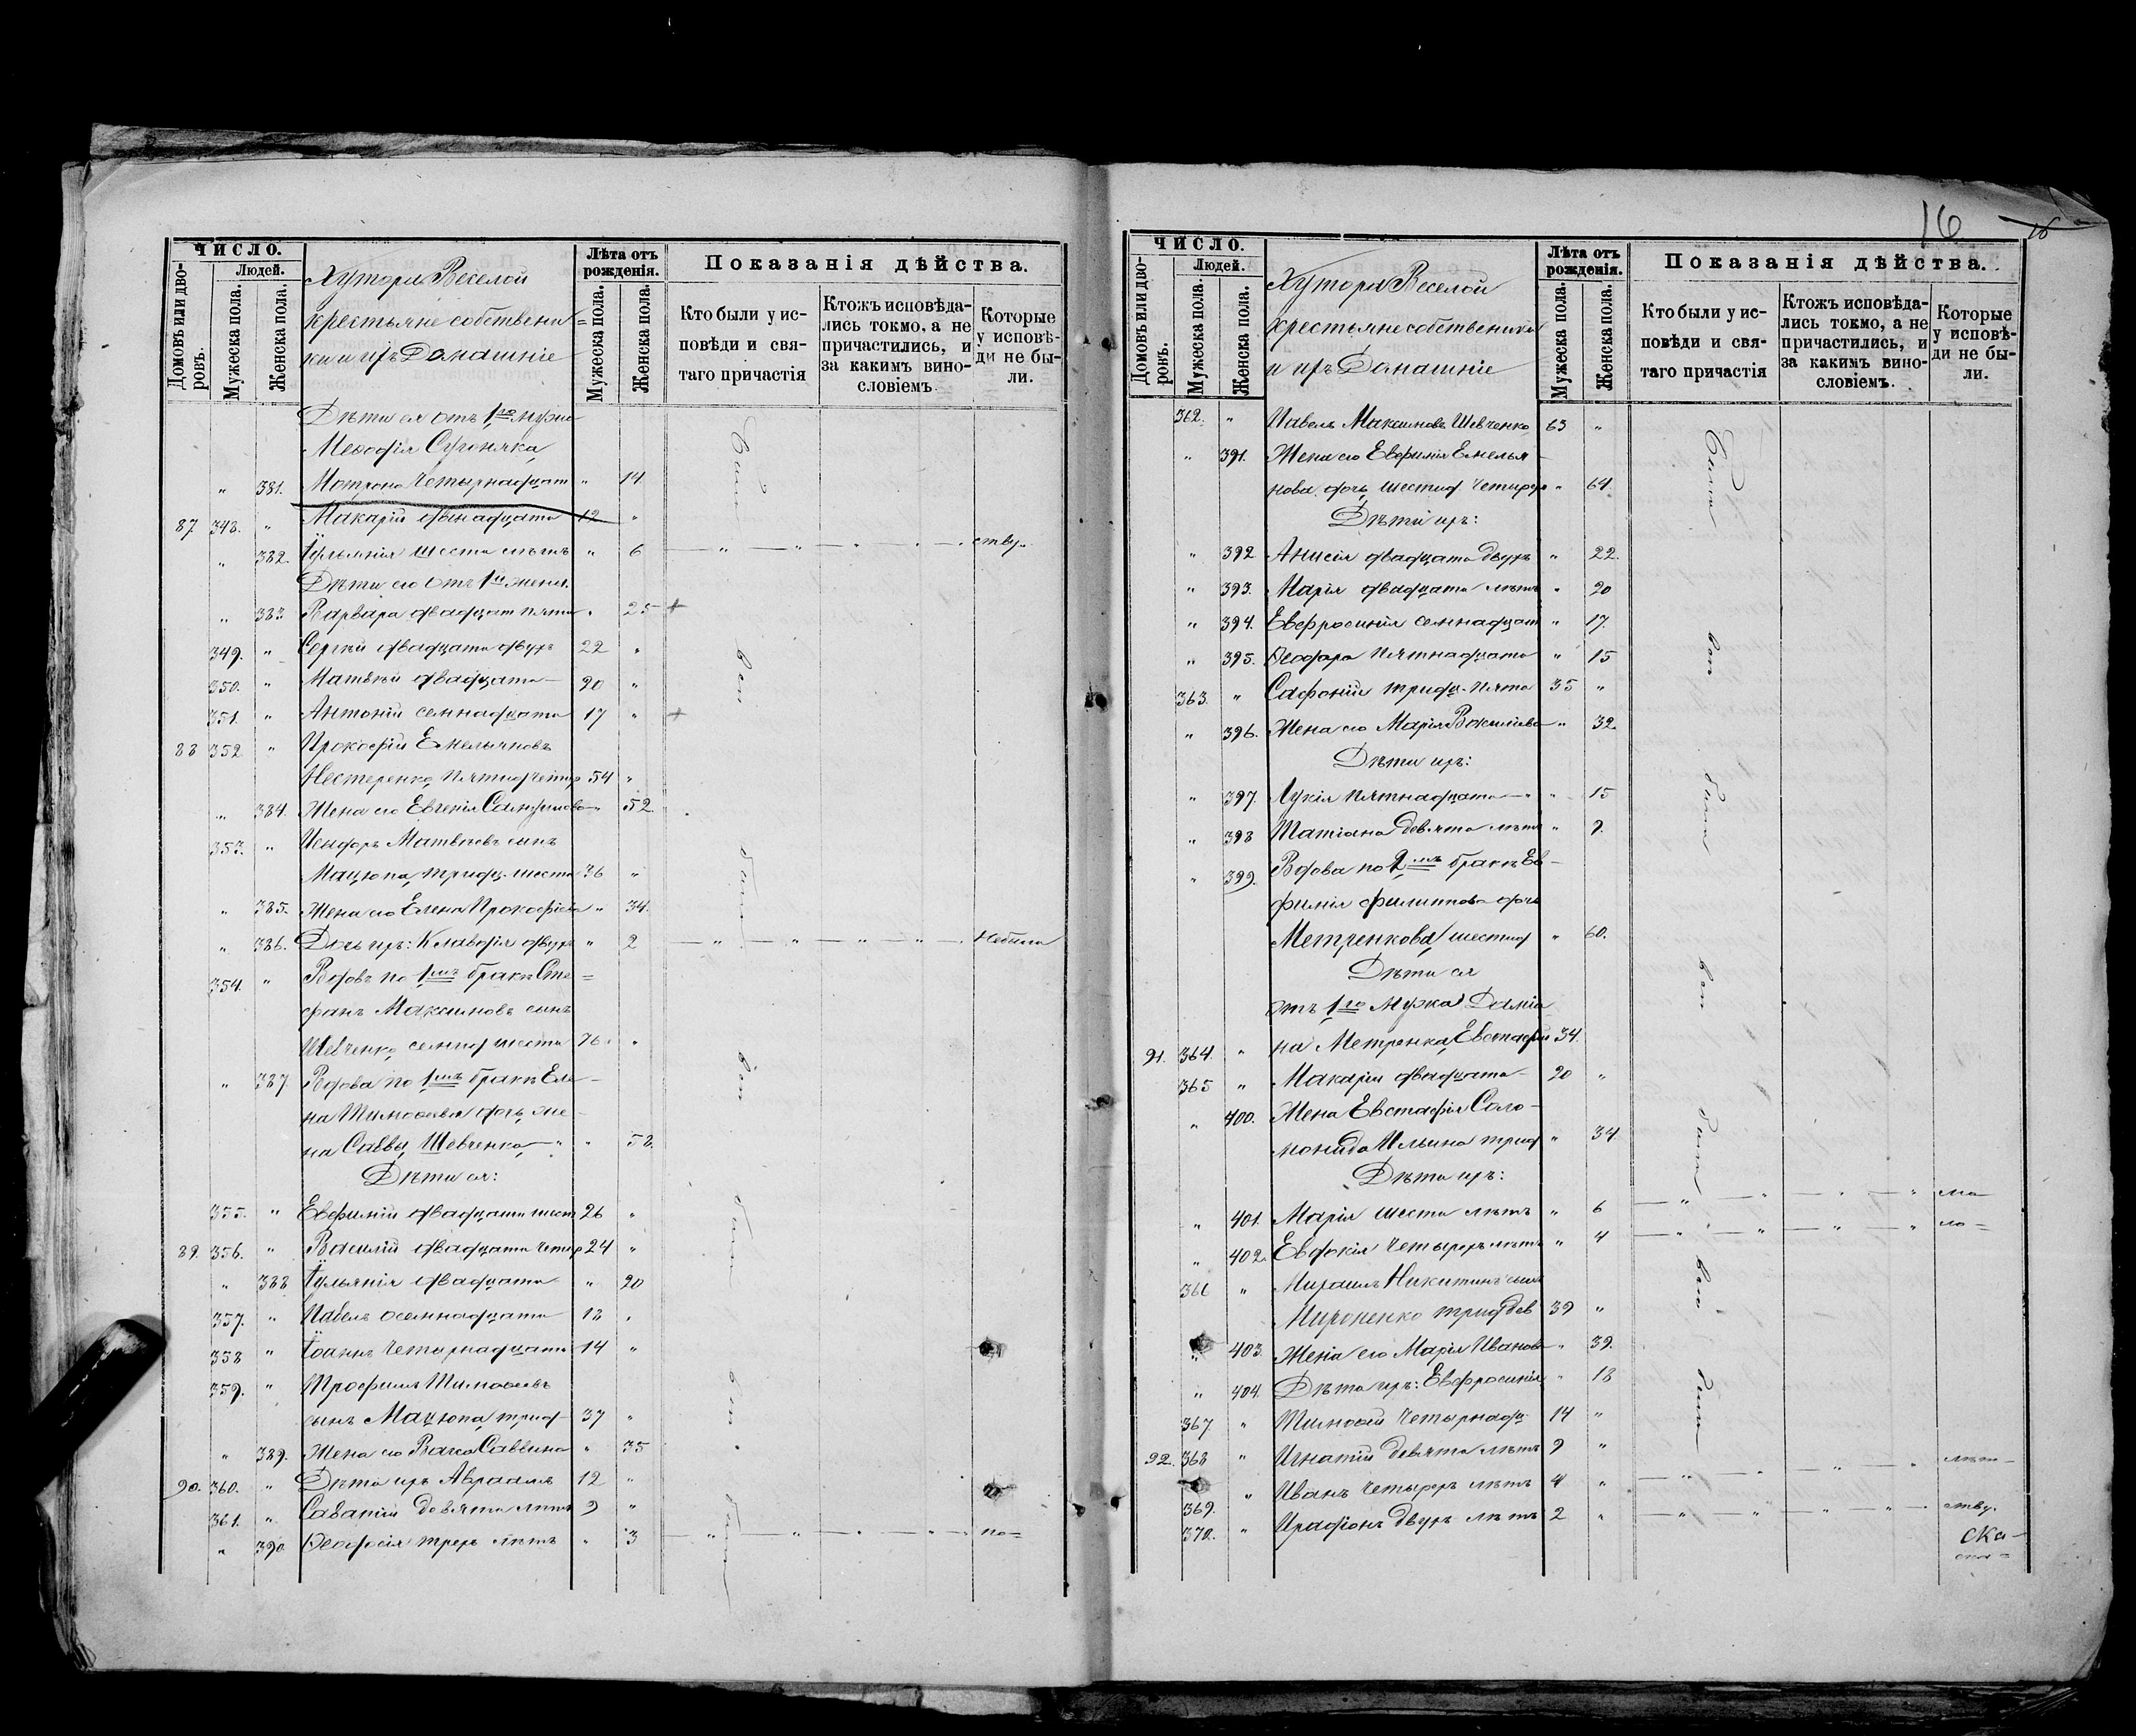 ЧИСЛО.
Людей.
Домовъ или дворовъ.
Мужеска пола.
Женска пола.
Хутора Веселой
крестьяне собствени=
ки и ихъ Домашніе
Лѣта отъ рожденія.
Мужеска пола.
Женска пола.
Показанія дѣйства.
Кто были у исповѣди и святаго причастія
Ктожъ исповѣдались токмо, а не причастились, и за какимъ винословіемъ.
Которые у исповѣди не были.
Дѣти ея отъ 1го мужа
Меѳодія
" 381. Мотрона Четырнадцат " 14
87 348. " Макарій двѣнадцати 12 "
" 382. Іульянія шести лѣтъ " 6 ству.
Дѣти его отъ 1й жены
" 383 Варвара двадцат пяти " 25 +
349. " Сергѣй двадцати двухъ 22 "
350. " Матѳѣй двадцати 20 "
351. " Антоній семнадцати 17 " +
88 352 " Прокофій Емельяновъ
Нестеренко, пятид четыр 54 "
" 384. Жена его Евгенія " 52
353. " Матѳѣевъ сынъ
Мацюпа, тридц. шести 36 "
" 385. Жена его Елена Прокофіева " 34.
" 386. Дочь ихъ: Клавдія двухъ " 2 небыла
354. " Вдовъ по 1мъ бракѣ Сте=
фанъ Максимовъ сынъ
Шевченко семид шести 76. "
" 387 Вдова по 1мъ бракѣ Еле-
на Тимоѳеева дочь, же-
на Саввы Шевченка " 58.
Дѣти ея:
355. " Евфимій двадцати шест 26 "
89. 356. " Василій двадцати четыр 24 "
" 388 Іульянія двадцати " 20
357. " Павелъ осемнадцати 18 "
358 " Іоаннъ четырнадцати 14 "
359. " Трофимъ Тимоѳеевъ
сынъ Мацюпа, трид- 37 "
" 389. Жена его Васса Саввина " 35
90. 360. " Дѣти ихъ Авраамъ 12 "
361. " Саватій девяти лѣтъ 9 "
" 390 Ѳеодосія трехъ лѣтъ " 3 по=
16
16
ЧИСЛО.
Людей.
Домовъ или дворовъ.
Мужеска пола.
Женска пола.
Хутора Веселой
крестьяне собственики
и ихъ Домашніе
Лѣта отъ рожденія.
Мужеска пола.
Женска пола.
Показанія дѣйства.
Кто были у исповѣди и святаго причастія
Ктожъ исповѣдались токмо, а не причастились, и за какимъ винословіемъ.
Которые у исповѣди не были.
362. " Павелъ Максимовъ Шевченко 63 "
" 391. Жена его Евфимія Емелья-
нова дочь, шестид четырехъ " 64.
Дѣти ихъ:
" 392 Анисія двадцати двухъ " 22.
" 393. Марія двадцати лѣтъ " 20
" 394. Евфросинія семнадцат " 17.
" 395. Ѳеодора пятнадцати " 15
363. " Сафоній тридц. пяти 35 "
" 396. Жена его Марія Васильева " 32
Дѣти ихъ:
" 397. Лукія пятнадцати " 15
" 398 Татіана девяти лѣтъ " 9.
" 399. Вдова по 2мъ бракѣ Ев-
фимія Филипова дочь
Метренкова, шестид " 60.
Дѣти ея
отъ 1го мужа Даміа
91. 364. " на Метренка, Евстафій 34.
365 " Макарій двадцати- 20 "
" 400. Жена Евстафія Соло-
монида Ильина трид " 34
Дѣти ихъ:
" 401. Марія шести лѣтъ " 6 ма
" 402. Евдокія четырехъ лѣтъ " 4 ло=
366 " Михаилъ Никитинъ сынъ
Мироненко трид дев 39 "
" 403. Жена его Марія Иванова " 39.
" 404. Дѣти ихъ: Евфросинія " 18
367. " Тимоѳей четырнадц 14 "
92. 368 " Игнатій девяти лѣтъ 9 "
369. " Иванъ четырехъ лѣтъ 4 " лѣт-
370. " Иродіонъ двухъ лѣтъ 2 " ству.
Ска-